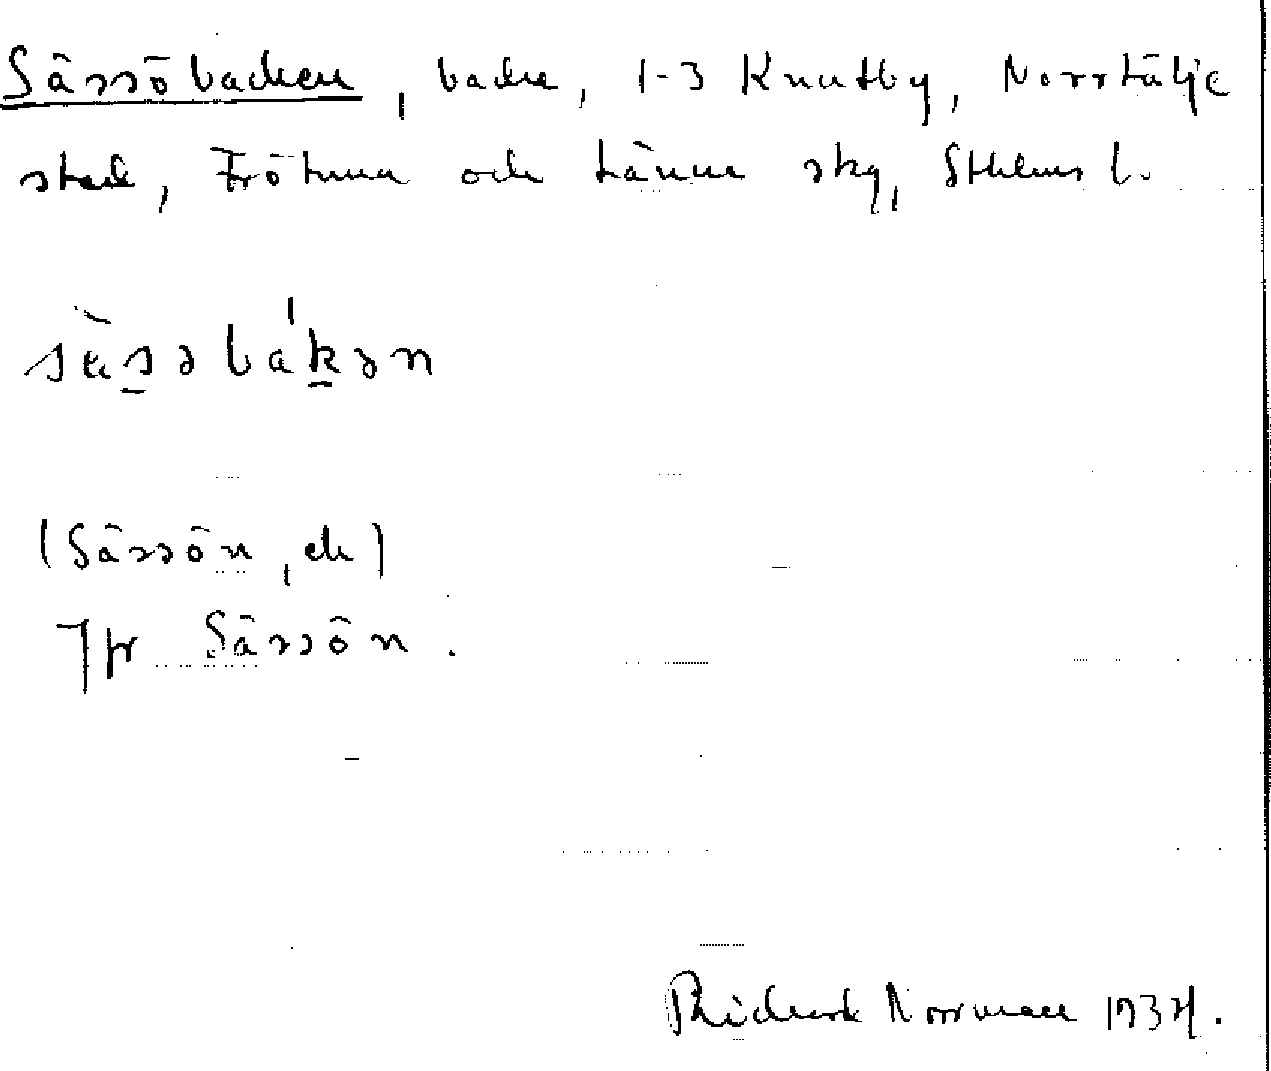 Sässöbacken, backe, 1-3 Knutby, Norrtälje
stad, Frötuna och Länna skg, Sthlms l.
säsəbakən
(Sässön, ek)
Jfr Sässön.
Rickard Norrman 1934.